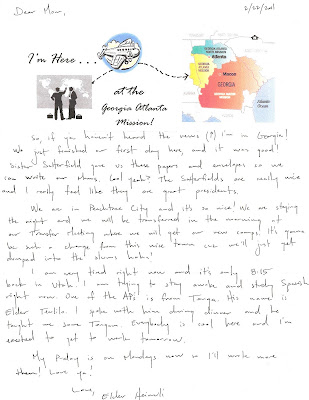 Dear Mom,
2/22/2011
I'm Here...
at the
Georgia Atlanta
Mission!
Atlanta
Macon
GEORGIA
Atlantic
Ocean
So, if you haven't heard the news (?) I'm in Georgia!
We just finished our first day here, and it was good!
Sister Satterfield gave us these papers and envelopes so we
can write our moms. Cool yeah? The Satterfields are really nice
and I really feel like they are great presidents.
We are in Peachtree City and it's so nice! We are staying
the night and we will be transferred in the morning at
our Transfer Meeting where we will get our new comps. It's gonna
be such a change from this nice town cuz we'll just get
dropped into the slums haha!
I am very tired right now and it's only 8:15
back in Utah. I am trying to stay awake and study Spanish
right now. One of the APs is from Tonga. His name is
Elder . I spoke with him during dinner and he
taught me some Tongan. Everybody is cool here and I'm
excited to get to work tomorrow.
My P-day is on Mondays now so I'll write more
then! Love ya!
Love,
Elder